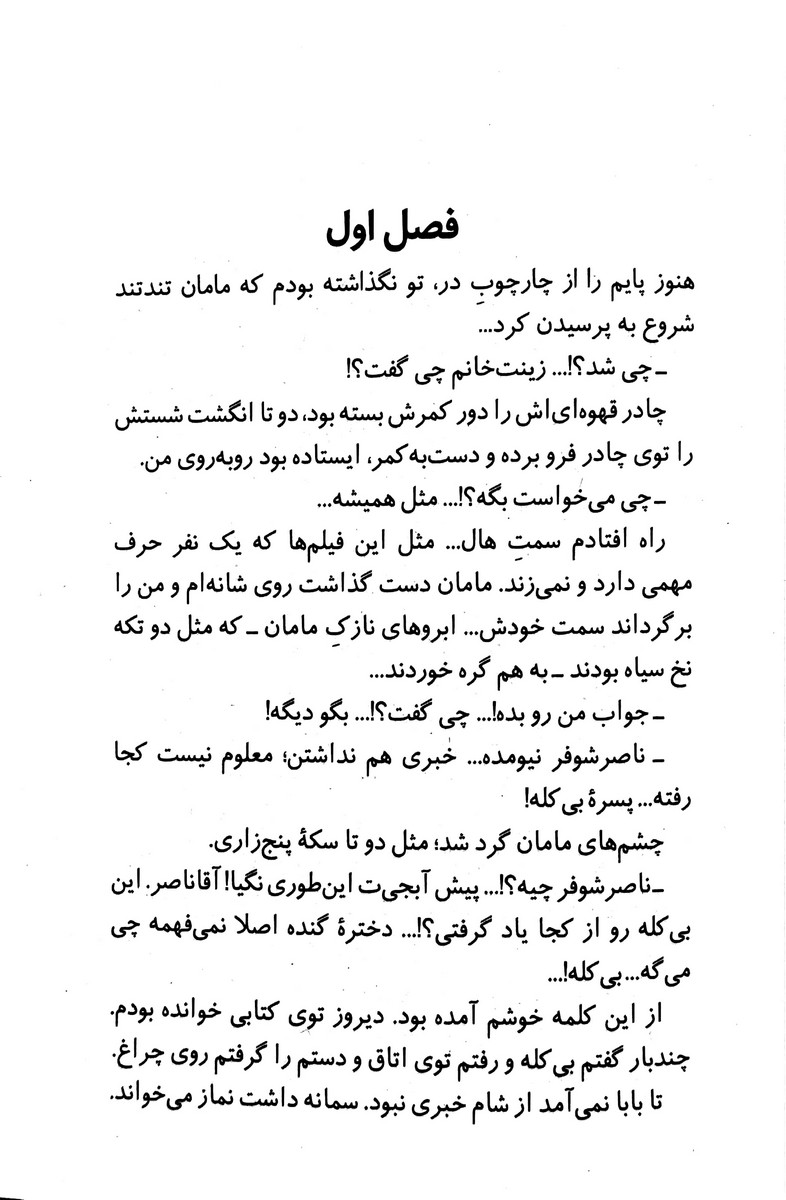 فصل اول
هنوز پایم را از چارچوبِ در، تو نگذاشته بودم که مامان تندتند
شروع به پرسیدن کرد...
ـ چی شد؟!... زینت‌خانم چی گفت؟!
چادر قهوه‌ای‌اش را دور کمرش بسته بود، دو تا انگشت شستش
را توی چادر فرو برده و دست‌به‌کمر، ایستاده بود روبه‌روی من.
ـ چی می‌خواست بگه؟!... مثل همیشه...
راه افتادم سمتِ هال... مثل این فیلم‌ها که یک نفر حرف
مهمی دارد و نمی‌زند. مامان دست گذاشت روی شانه‌ام و من را
برگرداند سمت خودش... ابروهای نازکِ مامان ـ که مثل دو تکه
نخ سیاه بودند ـ به هم گره خوردند...
ـ جواب من رو بده!... چی گفت؟!... بگو دیگه!
ـ ناصرشوفر نیومده... خبری هم نداشتن؛ معلوم نیست کجا
رفته... پسرهٔ بی‌کله!
چشم‌های مامان گرد شد؛ مثل دو تا سکهٔ پنج‌زاری.
ـ ناصرشوفر چیه؟!... پیش آبجی‌ت این‌طوری نگیا! آقاناصر. این
بی‌کله رو از کجا یاد گرفتی؟!... دخترهٔ گنده اصلا نمی‌فهمه چی
می‌گه... بی‌کله!...
از این کلمه خوشم آمده بود. دیروز توی کتابی خوانده بودم.
چندبار گفتم بی‌کله و رفتم توی اتاق و دستم را گرفتم روی چراغ.
تا بابا نمی‌آمد از شام خبری نبود. سمانه داشت نماز می‌خواند.